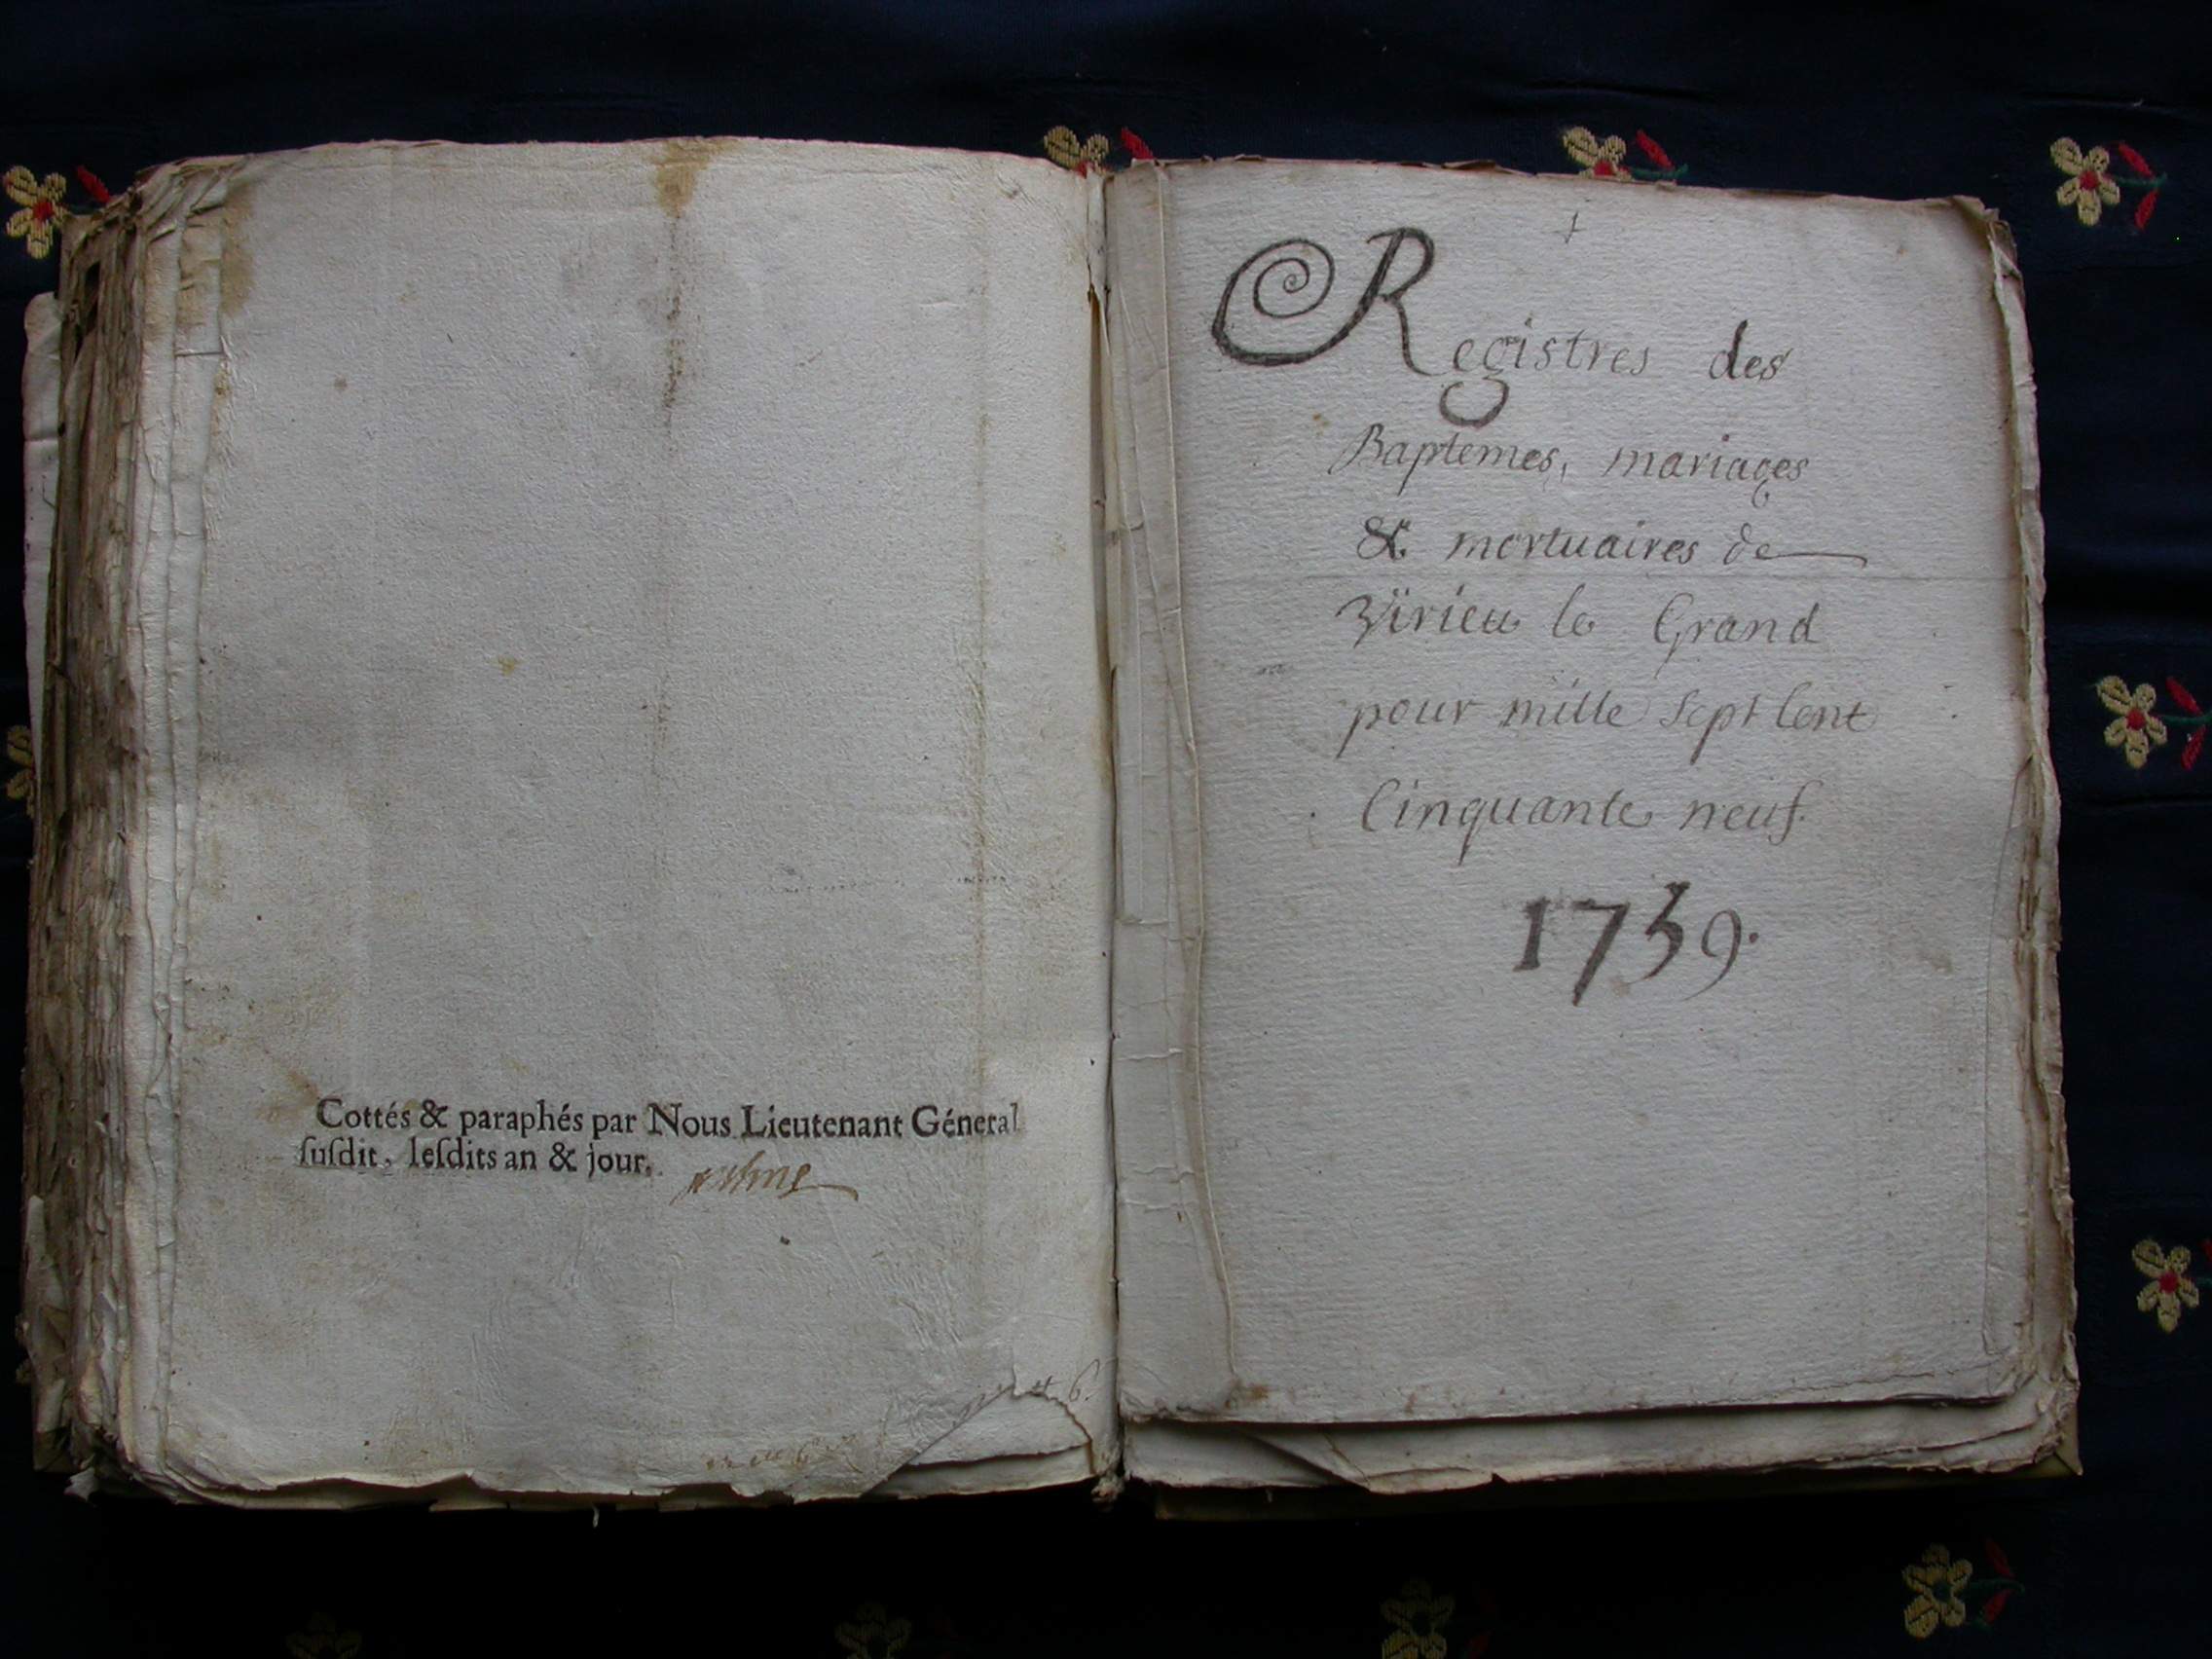 Cottés & paraphés par Nous Lieutenant Géneral
ſuſdit, leſdits an & jour.
Registres des
Baptemes, mariages
& mortuaires de
Virieu le Grand
pour mille sept Cent
Cinquante neuf.
1759.